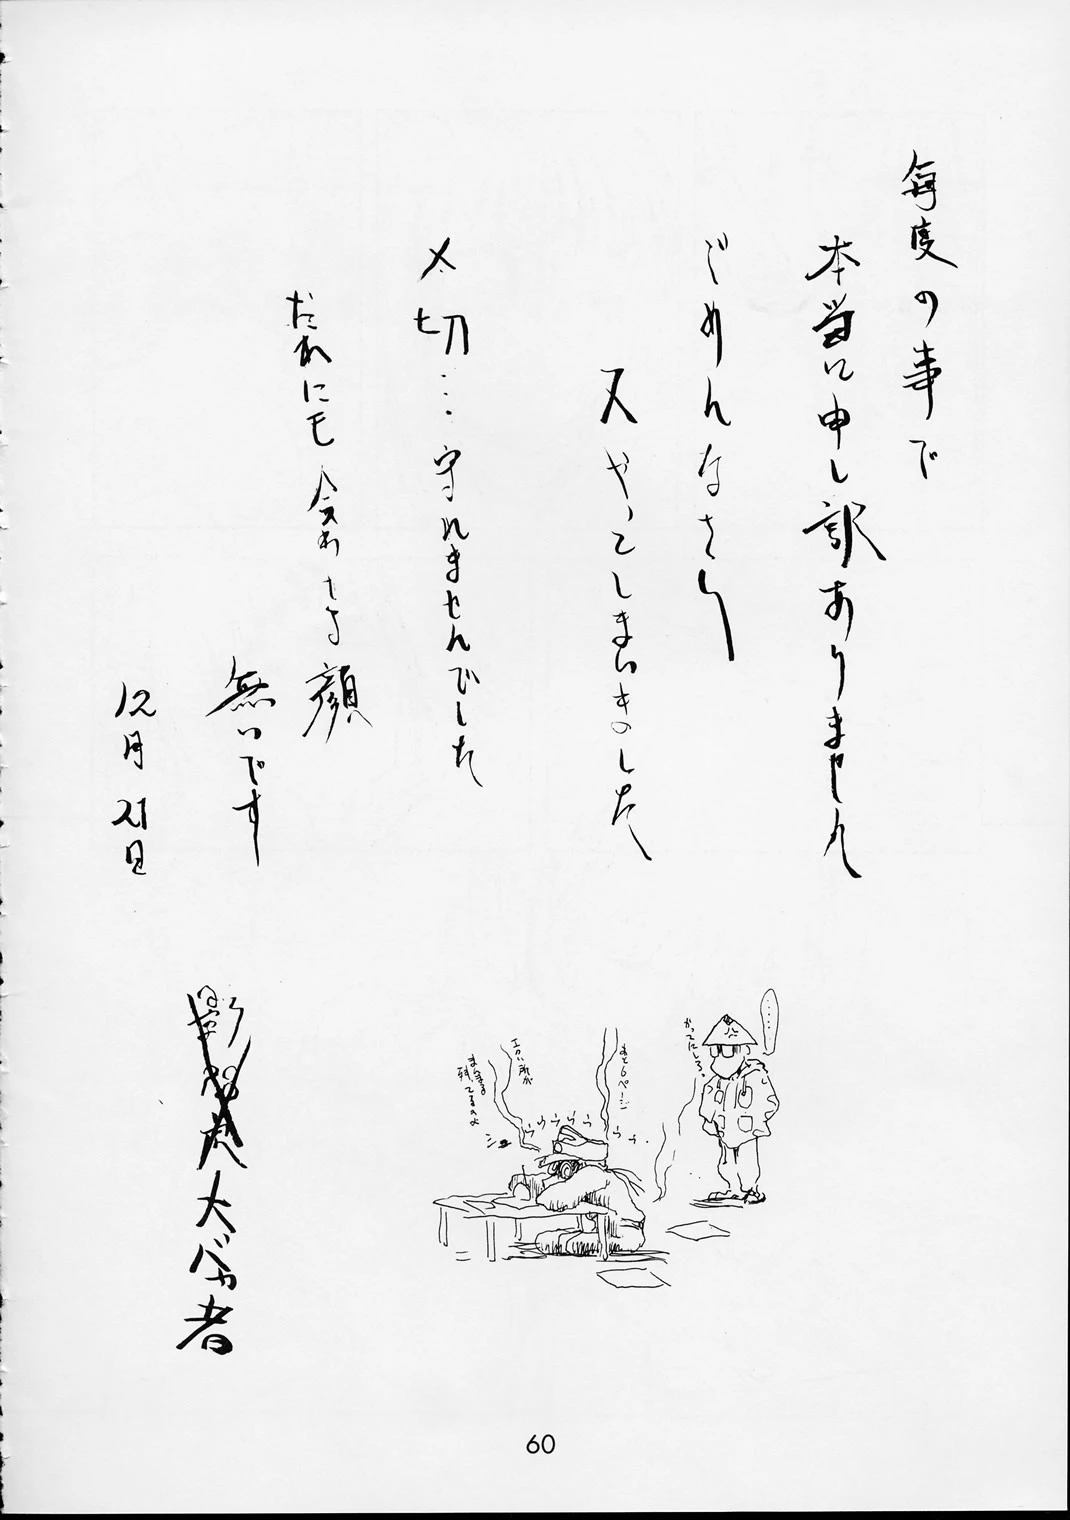 毎度の事で
本当に申し訳ありません
ごめんなさい
又やってしまいました
〆切…守れませんでした
だれにも会わせる顔
無いです
12月21日
影
虎
大バカ者
‥‥‥
かってにしろ。
あと6ページ
エロい所が
まだまだ
残ってるのよ
ウウウウウウウ
60